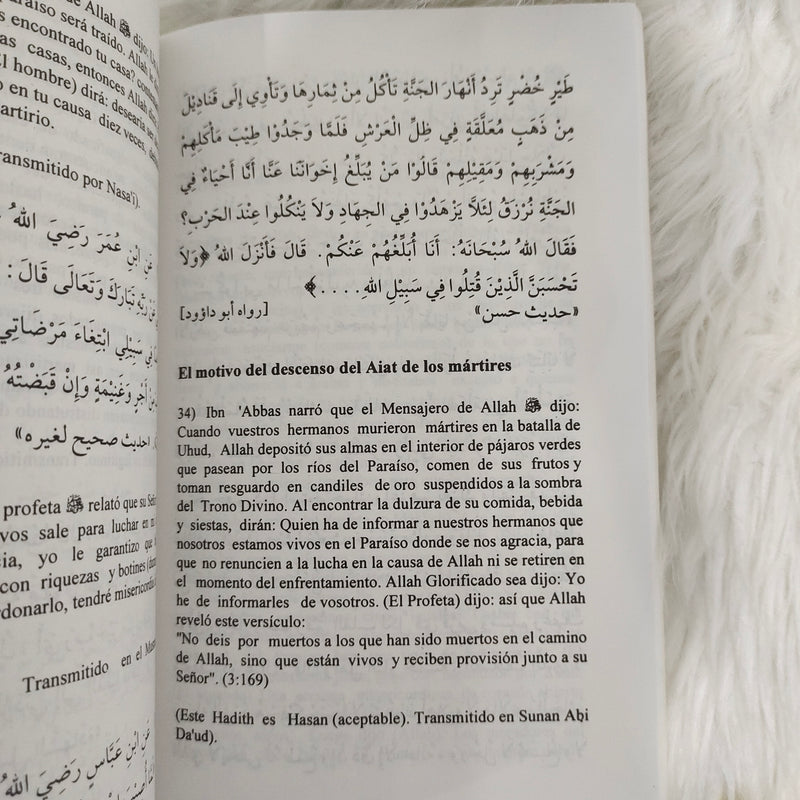 de Allah ﷺ dijo:
Paraíso será traído. Allah
encontrado tu casa?
casas, entonces Allah
El hombre) dirá: desearía
en tu causa diez veces,
artirio.
ransmitido por Nasa'i).
عَنِ ابْنِ عُمَرَ رَضِيَ اللهُ
تَبَارَكَ وَتَعَالَى قَالَ:
سَبِيلِي ابْتِغَاءَ مَرْضَاتِي
أَجْرٍ وَغَنِيمَةٍ وَإِنْ قَبَضْتُهُ
حديث صحيح لغيره»
profeta ﷺ relató que su
vos sale para luchar en
ia, yo le garantizo que
con riquezas y botines
donarlo, tendré misericordia
Transmitido en el
عَنِ ابْنِ عَبَّاسٍ رَضِيَ اللهُ
طَيْرٍ خُضْرٍ تَرِدُ أَنْهَارَ الجَنَّةِ تَأْكُلُ مِنْ ثِمَارِهَا وَتَأْوِي إِلَى قَنَادِيْلَ
مِنْ ذَهَبٍ مُعَلَّقَةٍ فِي ظِلِّ الْعَرْشِ فَلَمَّا وَجَدُوْا طِيْبَ مَأْكَلِهِمْ
وَمَشْرَبِهِمْ وَمَقِيْلِهِمْ قَالُوْا مَنْ يُبَلِّغُ إِخْوَانَنَا عَنَّا أَنَّا أَحْيَاءٌ فِي
الجَنَّةِ نُرْزَقُ لِئَلَّا يَزْهَدُوْا فِي الجِهَادِ وَلاَ يَنْكُلُوا عِنْدَ الحَرْبِ؟
فَقَالَ اللهُ سُبْحَانَهُ: أَنَا أُبَلِّغُهُمْ عَنْكُمْ. قَالَ فَأَنْزَلَ اللهُ ﴿وَلاَ
تَحْسَبَنَّ الَّذِيْنَ قُتِلُوا فِي سَبِيْلِ اللهِ. . . .﴾
«حديث حسن» [رواه أبو داوود]
El motivo del descenso del Aiat de los mártires
34) Ibn 'Abbas narró que el Mensajero de Allah ﷺ dijo:
Cuando vuestros hermanos murieron mártires en la batalla de
Uhud, Allah depositó sus almas en el interior de pájaros verdes
que pasean por los ríos del Paraíso, comen de sus frutos y
toman resguardo en candiles de oro suspendidos a la sombra
del Trono Divino. Al encontrar la dulzura de su comida, bebida
y siestas, dirán: Quien ha de informar a nuestros hermanos que
nosotros estamos vivos en el Paraíso donde se nos agracia, para
que no renuncien a la lucha en la causa de Allah ni se retiren en
el momento del enfrentamiento. Allah Glorificado sea dijo: Yo
he de informarles de vosotros. (El Profeta) dijo: así que Allah
reveló este versículo:
"No deis por muertos a los que han sido muertos en el camino
de Allah, sino que están vivos y reciben provisión junto a su
Señor". (3:169)
(Este Hadith es Hasan (aceptable). Transmitido en Sunan Abi
Da'ud).